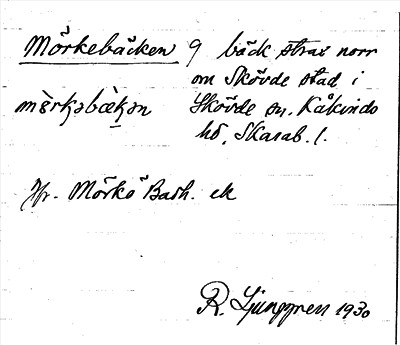 Mörkebäcken 9 bäck strax norr
om Skövde stad i
mø̀rkəbæ̀kən Skövde sn. Kåkinds
hd, Skarab. l.
Jfr. Mörkö Badh. ek
R. Ljunggren 1930